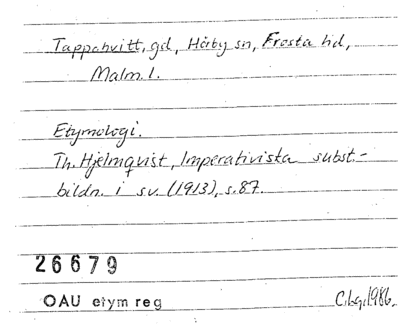 Tappahvitt, gd, Hörby sn, Frosta hd,
Malm. l.
Etymologi.
Th. Hjelmqvist, Imperativiska subst.-
bildn. i sv. (1913), s. 87.
26679
OAU etym reg
1986.